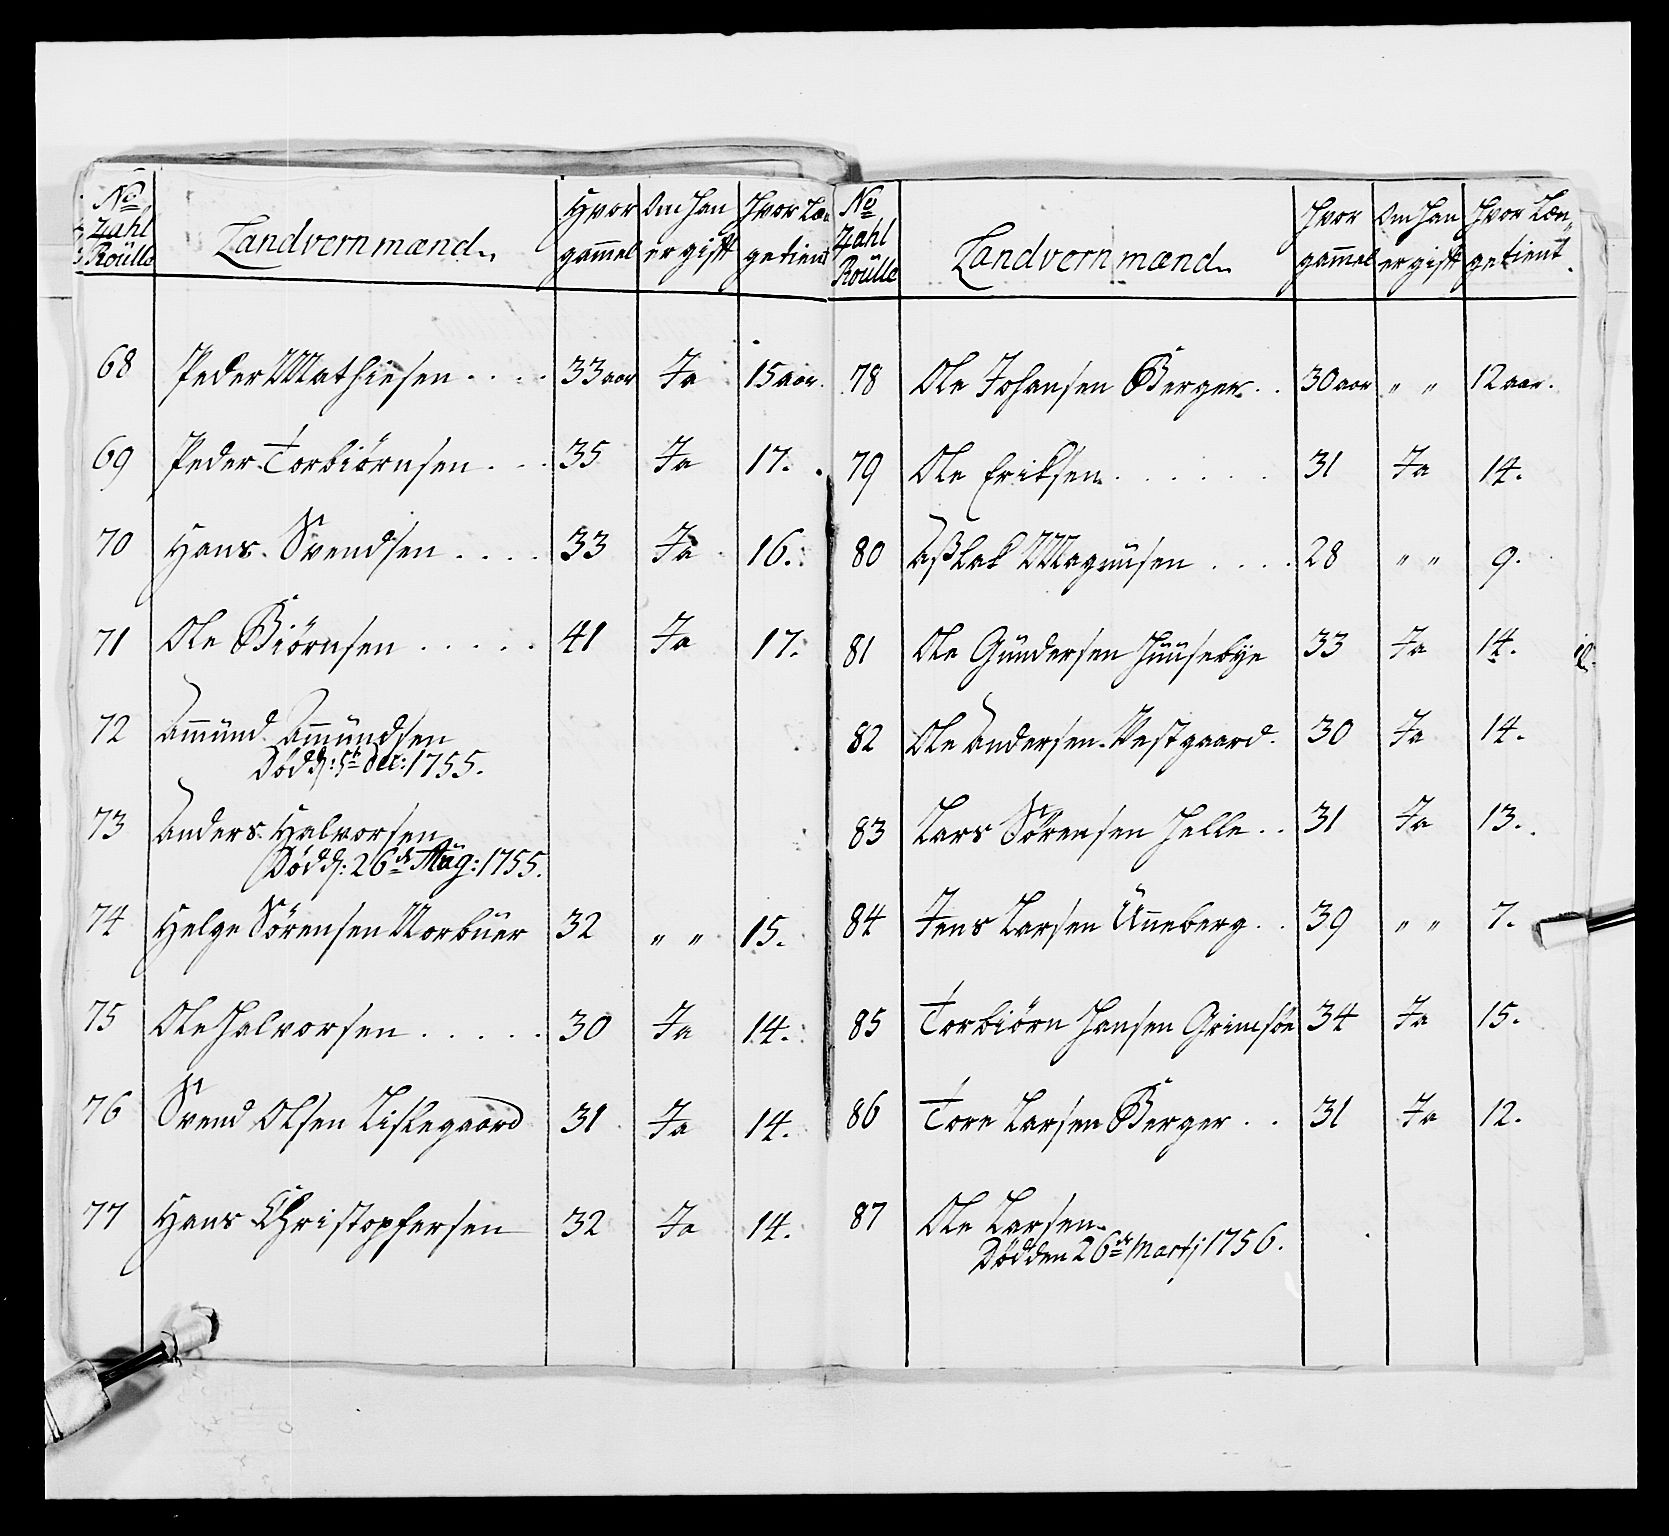 No Zahl Roülle | Landvernmænd. | Hvor gammel | Om han er gift | Hvor Læn gedient
68 Peder Mathiesen .... 33 aar Ja 15 aar.
69 Peder Torbiörnsen ... 35 Ja 17.
70 Hans Svendsen .... 33 Ja 16.
71 Ole Biörnsen ..... 41 Ja 17.
72 Amünd Amündsen
Död d: 5te dec: 1755.
73 Anders Halvorsen
Död d: 26de Aug: 1755.
74 Helge Sörensen Morbüer 32 " " 15.
75 Ole Halvorsen ..... 30 Ja 14.
76 Svend Olsen Lislegaard 31 Ja 14.
77 Hans Christopfersen 32 Ja 14.
No Zahl Roülle | Landvernmænd. | Hvor gammel | Om Han er gift | Hvor Læn gedient.
78 Ole Johansen Berger .. 30 aar " " 12 aar.
79 Ole Eriksen ...... 31 Ja 14.
80 Aßlak Magnüsen .... 28 " " 9.
81 Ole Gündersen Hüüsebye 33 Ja 14.
82 Ole Andersen Westgaard. 30 Ja 14.
83 Lars Sörensen Helle .. 31 Ja 13.
84 Jens Larsen Ünneberg .. 39 " " 7.
85 Torbiörn Hansen Grimsöe 34 Ja 15.
86 Tore Larsen Berger .. 31 Ja 12.
87 Ole Larsen
Död den 26de Martj 1756.